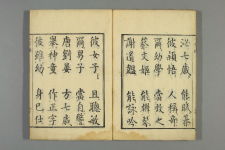 泌七歲 能賦棊
彼穎悟 人稱奇
爾幼學 當效之
蔡文姬 能辨琴
謝道韞 能詠吟
彼女子 且聰敏
爾男子 當自警
唐劉晏 方七歲
舉神童 作正字
彼雖幼 身已仕